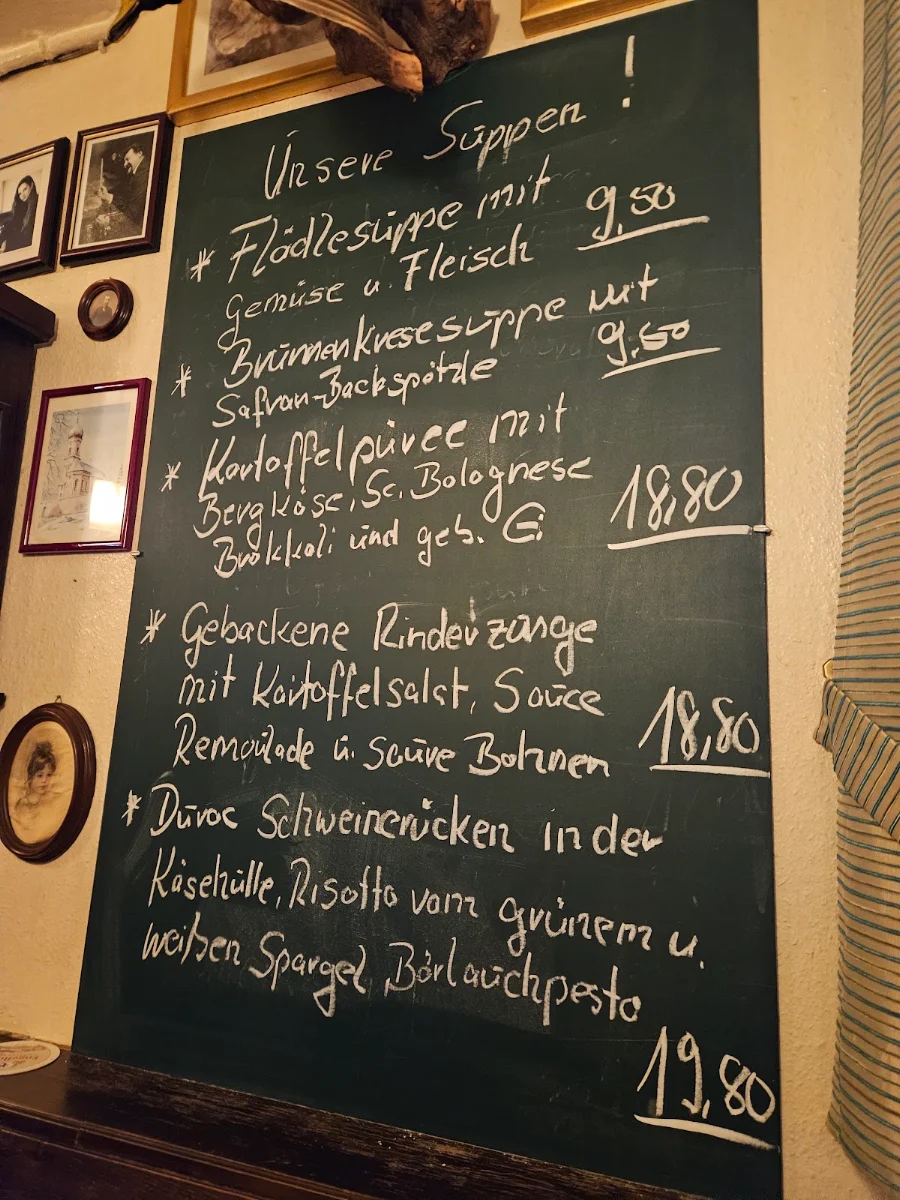 Unsere Suppen !
* Flädlesuppe mit
Gemüse u. Fleisch 9,50
* Brunnenkresesuppe mit
Safran-Backspätzle 9,50
* Kartoffelpüree mit
Bergkäse, Sc. Bolognese
Brokkoli und geb. Ei 18,80
* Gebackene Rinderzunge
mit Kartoffelsalat, Sauce
Remoulade u. saure Bohnen 18,80
* Duroc Schweinerücken in der
Käsehülle, Risotto vom grünem u.
weißen Spargel, Bärlauchpesto
19,80